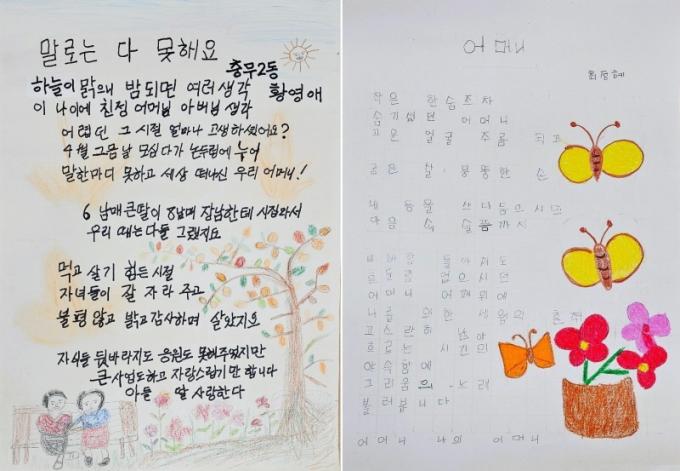 말로는 다 못해요
충무2동
황영애
하늘이 맑으니 밤되면 여러생각
이 나이에 친정 어머님 아버님 생각
어렵던 그 시절 얼마나 고생하셨어요?
4월 그믐날 모심다가 논두렁에 누어
말한마디 못하고 세상 떠나신 우리 어머니!
6 남매 큰딸이 8남매 장남한테 시집와서
우리 때는 다들 그랬지요
먹고 살기 힘든 시절
자녀들이 잘 자라 주고
불평 않고 밝고 감사하며 살았지요
자식들 뒷바라지도 응원도 못해주었지만
큰사업도하고 자랑스럽기만 합니다
아들 딸 사랑한다
어머니
작은 한숨조차
숨기셨던 어머니
고은 얼굴 주름 되고
굽은 손
쓰다듬으시던
마음 속 슬픔까지
비바람 몰아쳐도
흐트럼 없으시던
어머니 어깨위에
세월의 흔적
고스란히 남아
흐르는 시간의
야속함에
그리움의 노래
불러봅니다
어머니 나의 어머니